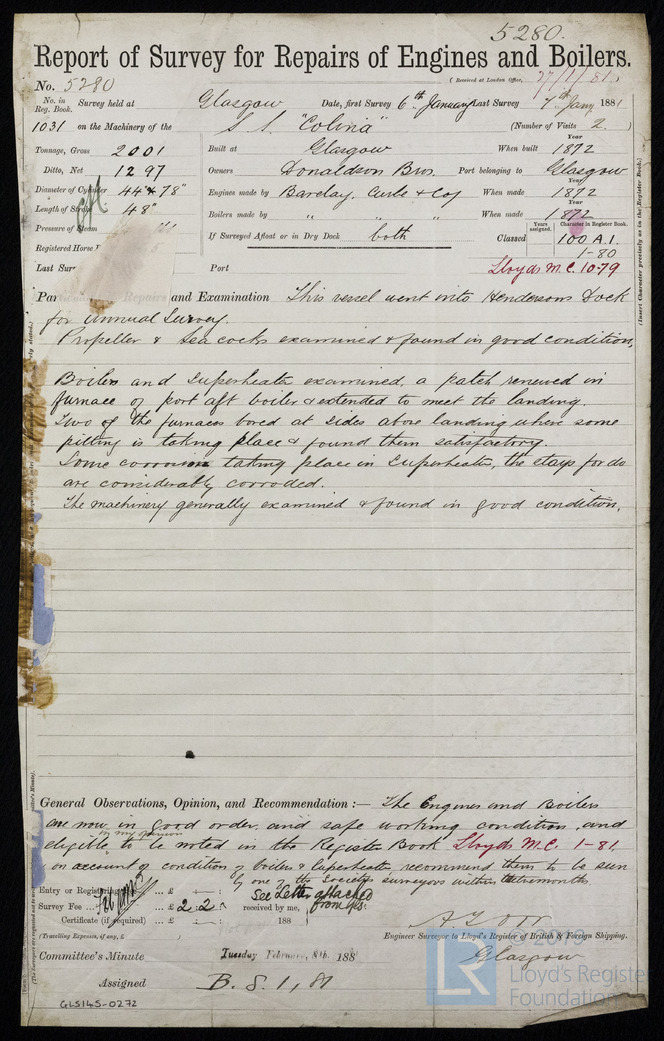 5280.
Report of Survey for Repairs of Engines and Boilers.
(Received at London Office, 27/1/81.)
No. 5280
No. in Reg. Book. Survey held at Glasgow Date, first Survey 6th January Last Survey 7th Jany 1881
1031 on the Machinery of the S.S. "Colina" (Number of Visits 2.)
Tonnage, Gross 2001 Built at Glasgow When built Year 1872
Ditto, Net 1297 Owners Donaldson Bros. Port belonging to Glasgow
Diameter of Cylinder 44" & 78" Engines made by Barclay, Curle & Coy When made 1872
Length of Stroke 48" Year
Boilers made by " " " When made 1872
Pressure of Steam
If Surveyed Afloat or in Dry Dock both Classed Years assigned. Character in Register Book. 100 A.1.
Registered Horse P 1-80
Last Sur Port Lloyds M.C. 10-79
Particulars of Repairs and Examination This vessel went into Hendersons Dock
for Annual Survey.
Propeller & Sea cocks examined & found in good condition,
Boilers and Superheater examined, a patch renewed in
furnace of port aft boiler & extended to meet the landing.
Two of the furnaces bored at sides above landing where some
pitting is taking place & found them satisfactory.
Some corrosion taking place in Superheater, the stays for do
are considerably corroded.
The machinery generally examined & found in good condition,
General Observations, Opinion, and Recommendation :— The Engines and Boilers
are now in good order and safe working condition, and
in my opinion
eligible to be noted in the Register Book Lloyds M.C. 1-81.
on account of condition of boilers & Superheater, recommend them to be seen
by one of the Society's surveyors within twelve months.
Entry or Registr ... £ : :
See Letter attached from Gls.
Survey Fee ... £ 2 : 2 : received by me,
Certificate (if required) ... £ : : 188
(Travelling Expenses, if any, £
Engineer Surveyor to Lloyd's Register of British & Foreign Shipping.
Glasgow
Committee's Minute Tuesday February, 8th. 188
Assigned B. S. 1, 81
GLS145-0272
(Insert Character precisely as in the Register Book.)
LR
© 2019
Lloyd's Register
Foundation